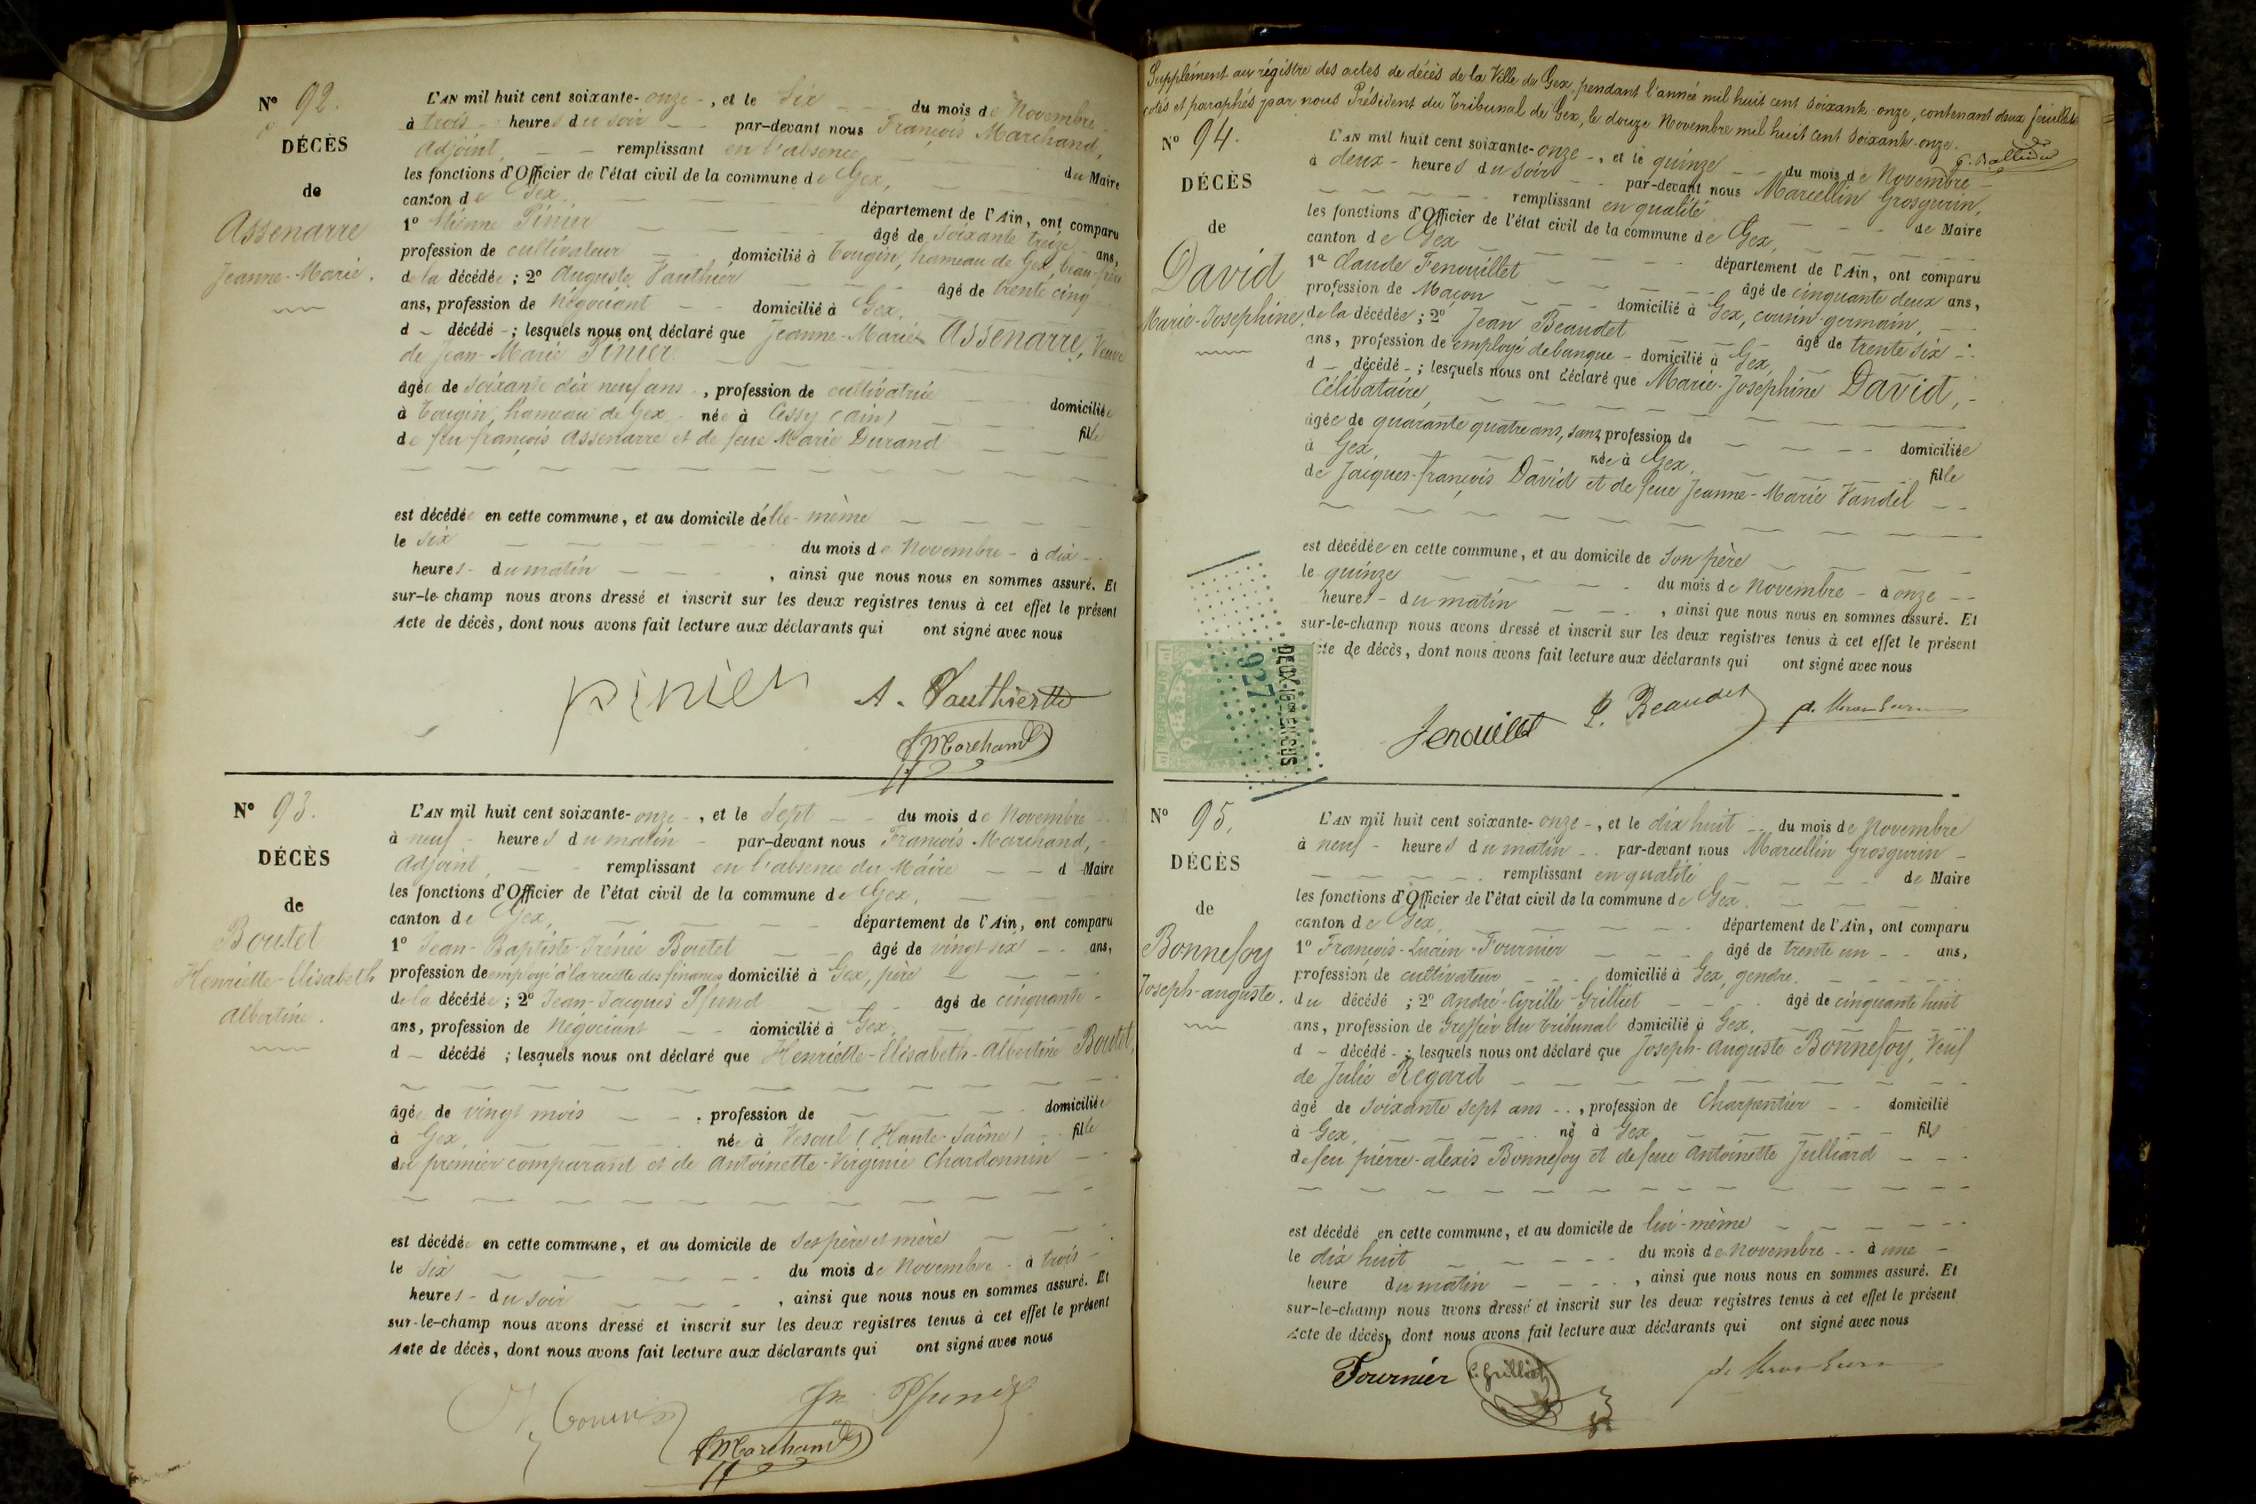 N° 92.
DÉCÈS
de
Assenarre
Jeanne-Marie.
L'AN mil huit cent soixante-onze-, et le Six du mois de Novembre
à trois heures du soir par-devant nous François Marchand,
Adjoint, remplissant en l'absence du Maire
les fonctions d'Officier de l'état civil de la commune de Gex,
canton de Gex, département de l'Ain, ont comparu
1° Etienne Pinier âgé de soixante treize ans,
profession de cultivateur domicilié à Tougin, hameau de Gex, beau-frère
de la décédée ; 2° Auguste Vauthier âgé de trente cinq
ans, profession de Négociant domicilié à Gex,
d - décédé - ; lesquels nous ont déclaré que Jeanne-Marie Assenarre, Veuve
de Jean-Marie Pinier
âgée de soixante dix neuf ans, profession de cultivatrice domiciliée
à Tougin, hameau de Gex née à Cessy (Ain) fille
de feu françois Assenarre et de feue Marie Durand
est décédée en cette commune, et au domicile d'elle-même
le six du mois de Novembre - à dix
heures - du matin , ainsi que nous nous en sommes assuré. Et
sur-le-champ nous avons dressé et inscrit sur les deux registres tenus à cet effet le présent
Acte de décès, dont nous avons fait lecture aux déclarants qui ont signé avec nous
pinier A. Vauthier
Marchand
N° 93.
DÉCÈS
de
Boutet
Henriette-Elisabeth
Albertine.
L'AN mil huit cent soixante-onze-, et le Sept du mois de Novembre
à neuf heures du matin par-devant nous François Marchand,
Adjoint, remplissant en l'absence du Maire d Maire
les fonctions d'Officier de l'état civil de la commune de Gex,
canton de Gex, département de l'Ain, ont comparu
1° Jean-Baptiste-Irénée Boutet âgé de vingt-six ans,
profession de employé à la recette des finances domicilié à Gex, père
de la décédée ; 2° Jean-Jacques Pfund âgé de cinquante
ans, profession de Négociant domicilié à Gex
d - décédé ; lesquels nous ont déclaré que Henriette-Elisabeth-Albertine Boutet,
âgée de vingt mois , profession de domiciliée
à Gex, née à Vesoul (Haute-Saône) fille
du premier comparant et de Antoinette-Virginie Chardonnin
est décédée en cette commune, et au domicile de ses père et mère
le six du mois de Novembre à trois
heures - du soir , ainsi que nous nous en sommes assuré. Et
sur-le-champ nous avons dressé et inscrit sur les deux registres tenus à cet effet le présent
Acte de décès, dont nous avons fait lecture aux déclarants qui ont signé avec nous
Pfund
Marchand
Supplément au régistre des actes de décès de la Ville de Gex, pendant l'année mil huit cent soixante-onze, contenant deux feuillets
cotés et paraphés par nous Président du Tribunal de Gex, le douze Novembre mil huit cent soixante-onze.
N° 94.
DÉCÈS
de
David
Marie-Josephine.
L'AN mil huit cent soixante-onze-, et le quinze du mois de Novembre
à deux - heures du soir par-devant nous Marcellin Grosgurin,
remplissant en qualité de Maire
les fonctions d'Officier de l'état civil de la commune de Gex,
canton de Gex département de l'Ain, ont comparu
1° Claude Fenouillet âgé de cinquante deux ans,
profession de Maçon domicilié à Gex, cousin-germain,
de la décédée ; 2° Jean Beaudet âgé de trente six
ans, profession de employé de banque - domicilié à Gex,
d - décédé - ; lesquels nous ont déclaré que Marie-Josephine David,
Célibataire,
âgée de quarante quatre ans, sans profession de domiciliée
à Gex, née à Gex, fille
de Jacques-françois David et de feue Jeanne-Marie Vandel
est décédée en cette commune, et au domicile de son père
le quinze du mois de Novembre - à onze
heures - du matin , ainsi que nous nous en sommes assuré. Et
sur-le-champ nous avons dressé et inscrit sur les deux registres tenus à cet effet le présent
Acte de décès, dont nous avons fait lecture aux déclarants qui ont signé avec nous
927
DEUX 10mes EN SUS
Fenouillet Beaudet
N° 95.
DÉCÈS
de
Bonnefoy
Joseph-auguste.
L'AN mil huit cent soixante-onze-, et le dix huit du mois de Novembre
à neuf - heures du matin par-devant nous Marcellin Grosgurin
remplissant en qualité de Maire
les fonctions d'Officier de l'état civil de la commune de Gex.
canton de Gex, département de l'Ain, ont comparu
1° François-Lucien Fournier âgé de trente un ans,
profession de cultivateur domicilié à Gex, gendre.
du décédé ; 2° André-Cyrille Grilliet âgé de cinquante huit
ans, profession de Greffier du tribunal domicilié à Gex,
d - décédé - ; lesquels nous ont déclaré que Joseph-Auguste Bonnefoy, Veuf
de Julie Regard
âgé de soixante sept ans , profession de Charpentier domicilié
à Gex, né à Gex fils
de feu pierre-alexis Bonnefoy et de feue Antoinette Julliard
est décédé en cette commune, et au domicile de lui-même
le dix huit du mois de Novembre à une
heure du matin , ainsi que nous nous en sommes assuré. Et
sur-le-champ nous avons dressé et inscrit sur les deux registres tenus à cet effet le présent
Acte de décès, dont nous avons fait lecture aux déclarants qui ont signé avec nous
Fournier Grilliet